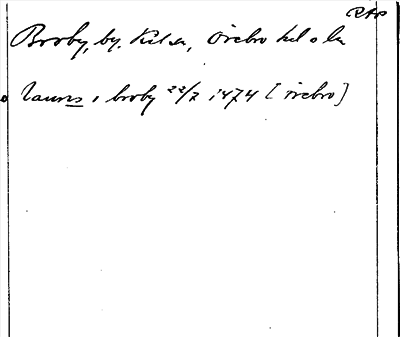 RAP
Broby, by. Kil sn, Örebro hd o ln
Lauris i broby 22/7 1474 [Örebro]